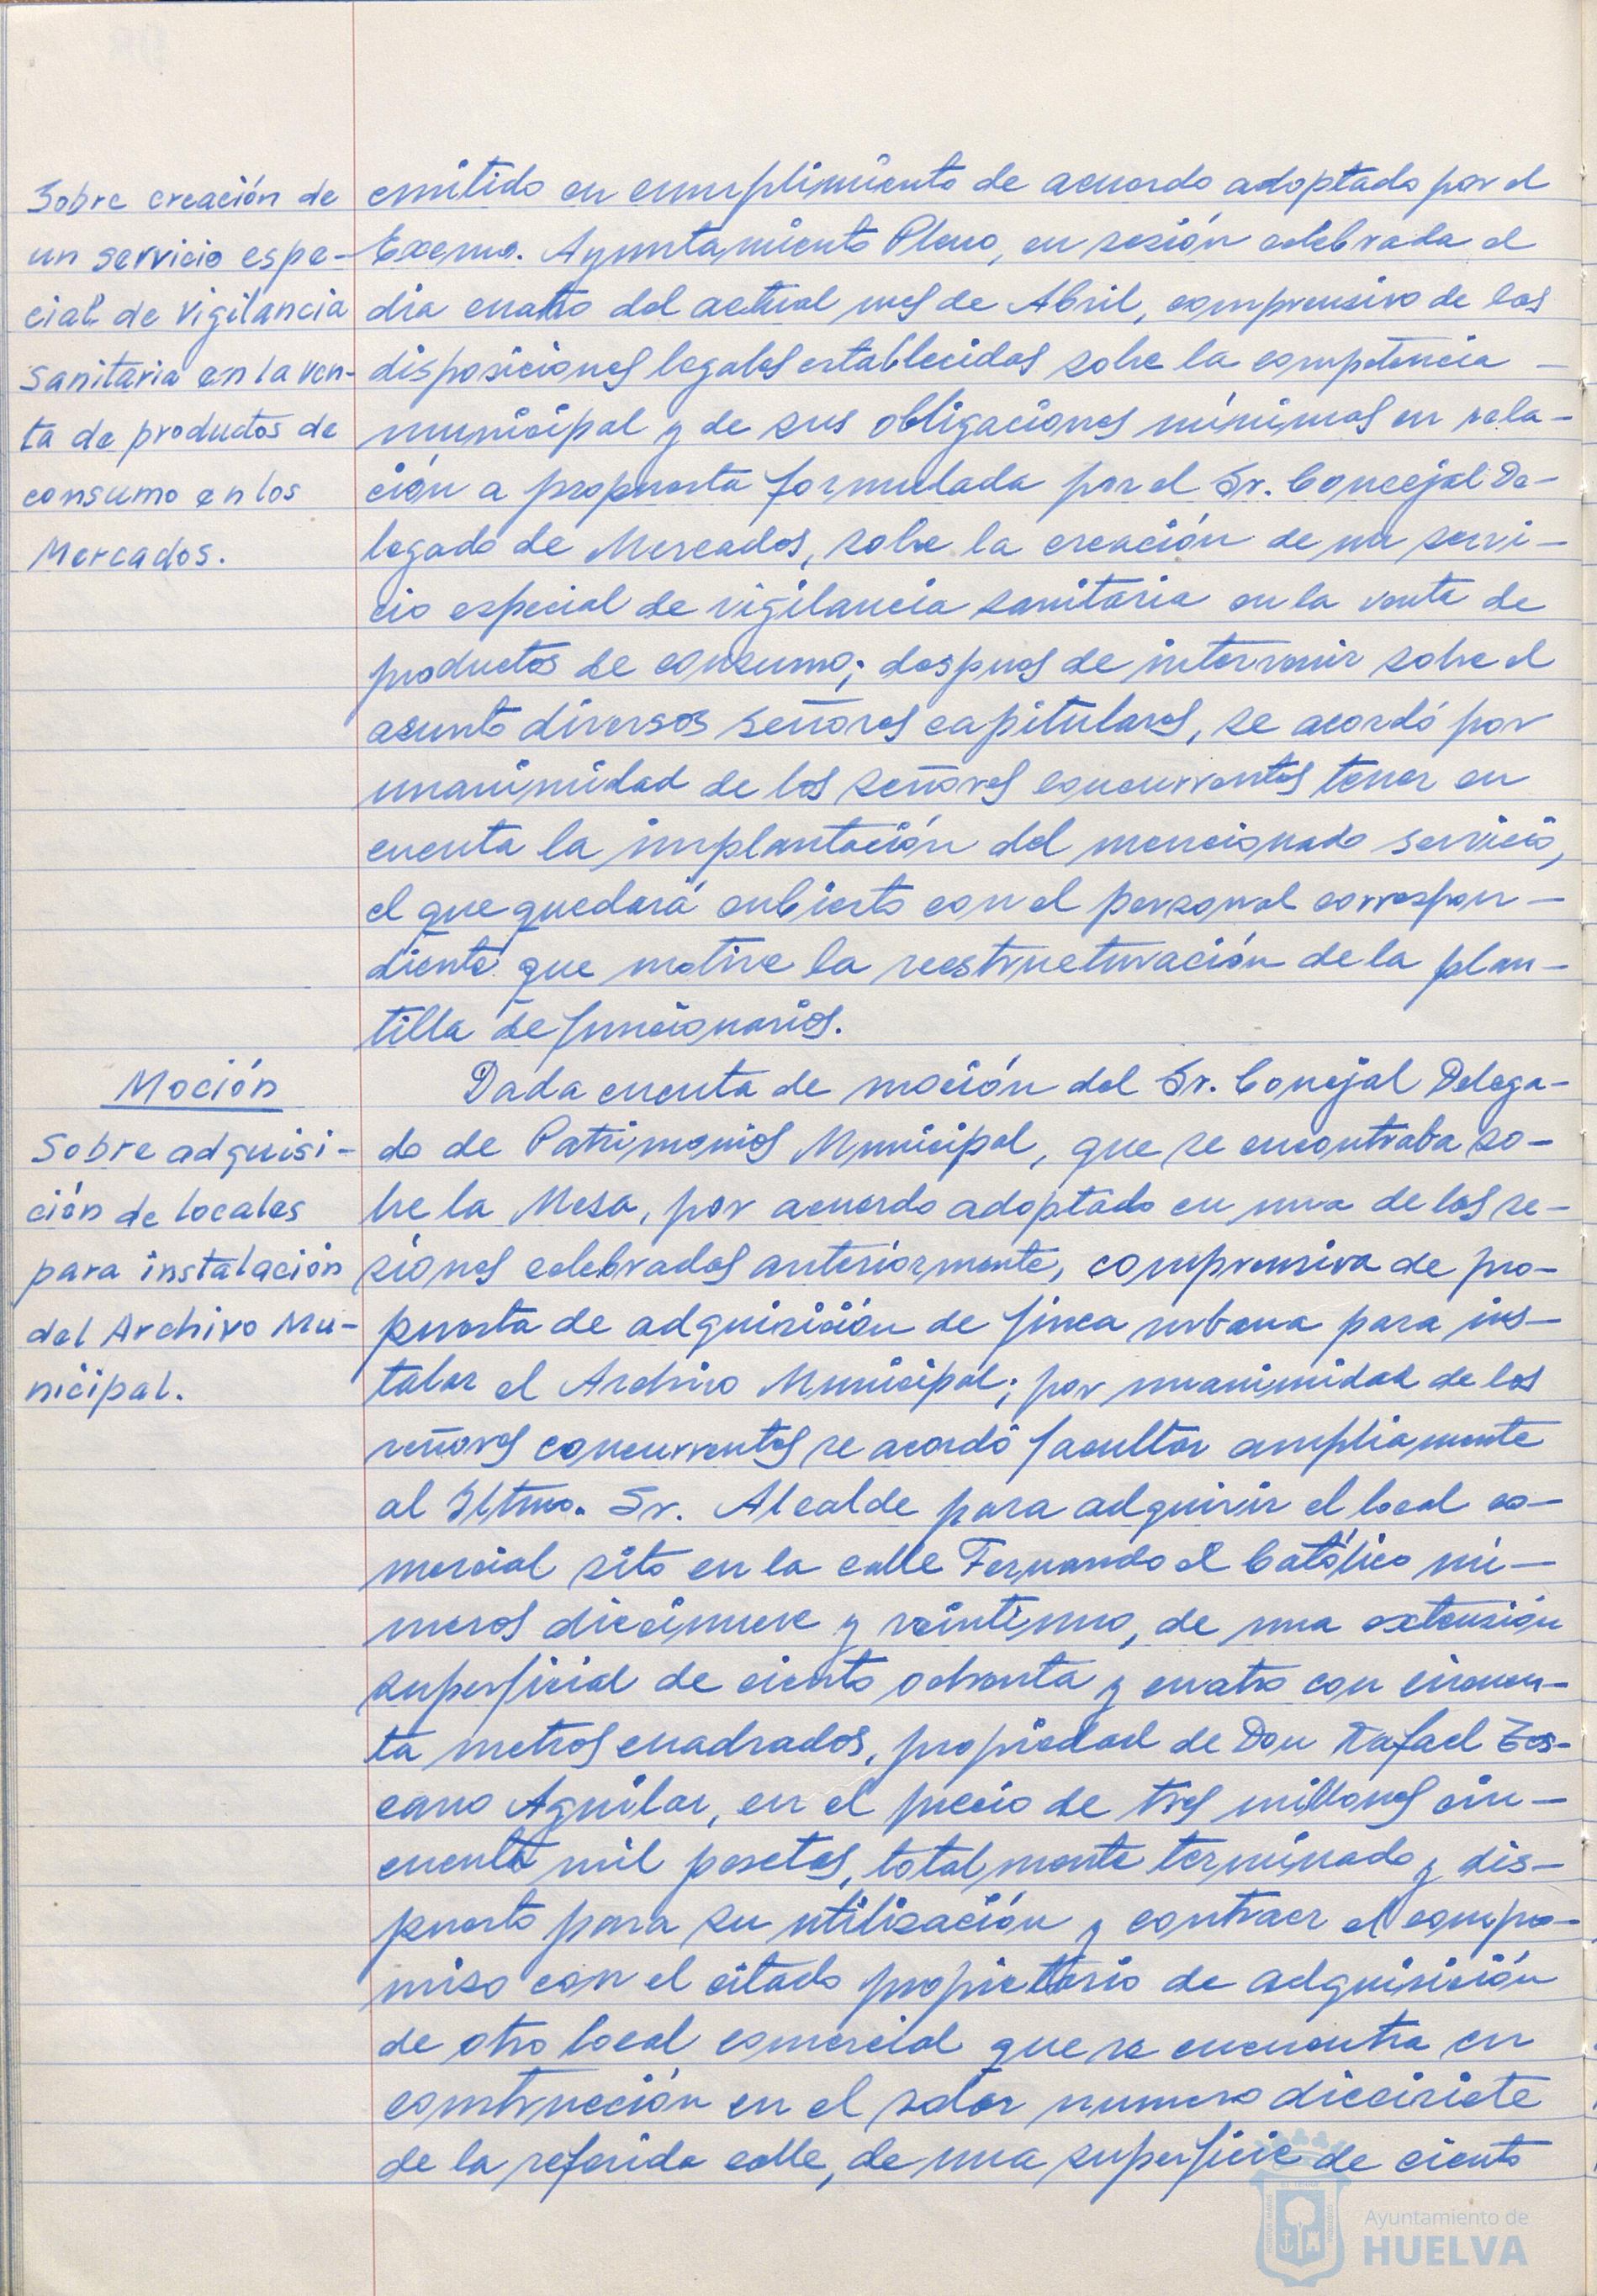 Sobre creación de
un servicio espe-
cial de vigilancia
sanitaria en la ven-
ta de productos de
consumo en los
Mercados.
emitido en cumplimiento de acuerdo adoptado por el
Excmo. Ayuntamiento Pleno, en sesión celebrada el
dia cuatro del actual mes de Abril, comprensivo de las
disposiciones legales establecidas sobre la competencia -
municipal y de sus obligaciones mínimas en rela-
ción a propuesta formulada por el Sr. Concejal De-
legado de Mercados, sobre la creación de un servi-
cio especial de vigilancia sanitaria en la venta de
productos de consumo; despues de intervenir sobre el
asunto diversos señores capitulares, se acordó por
unanimidad de los señores concurrentes tener en
cuenta la implantación del mencionado servicio,
el que quedará cubierto con el personal correspon-
diente que motive la reestructuración de la plan-
tilla de funcionarios.
Moción
Sobre adquisi-
ción de locales
para instalación
del Archivo Mu-
nicipal.
Dada cuenta de moción del Sr. Concejal Delega-
do de Patrimonios Municipal, que se encontraba so-
bre la Mesa, por acuerdo adoptado en una de las se-
siones celebradas anteriormente, comprensiva de pro-
puesta de adquisición de finca urbana para ins-
talar el Archivo Municipal; por unanimidad de los
señores concurrentes se acordó facultar ampliamente
al Iltmo. Sr. Alcalde para adquirir el local co-
mercial sito en la calle Fernando el Católico nú-
meros diecinueve y veintiuno, de una extensión
superficial de ciento ochenta y cuatro con cincuen-
ta metros cuadrados, propiedad de Don Rafael Tos-
cano Aguilar, en el precio de tres millones cin-
cuenta mil pesetas, totalmente terminado y dis-
puesto para su utilización y contraer el compro-
miso con el citado propietario de adquisición
de otro local comercial que se encuentra en
construcción en el solar numero diecisiete
de la referida calle, de una superficie de ciento
Ayuntamiento de
HUELVA